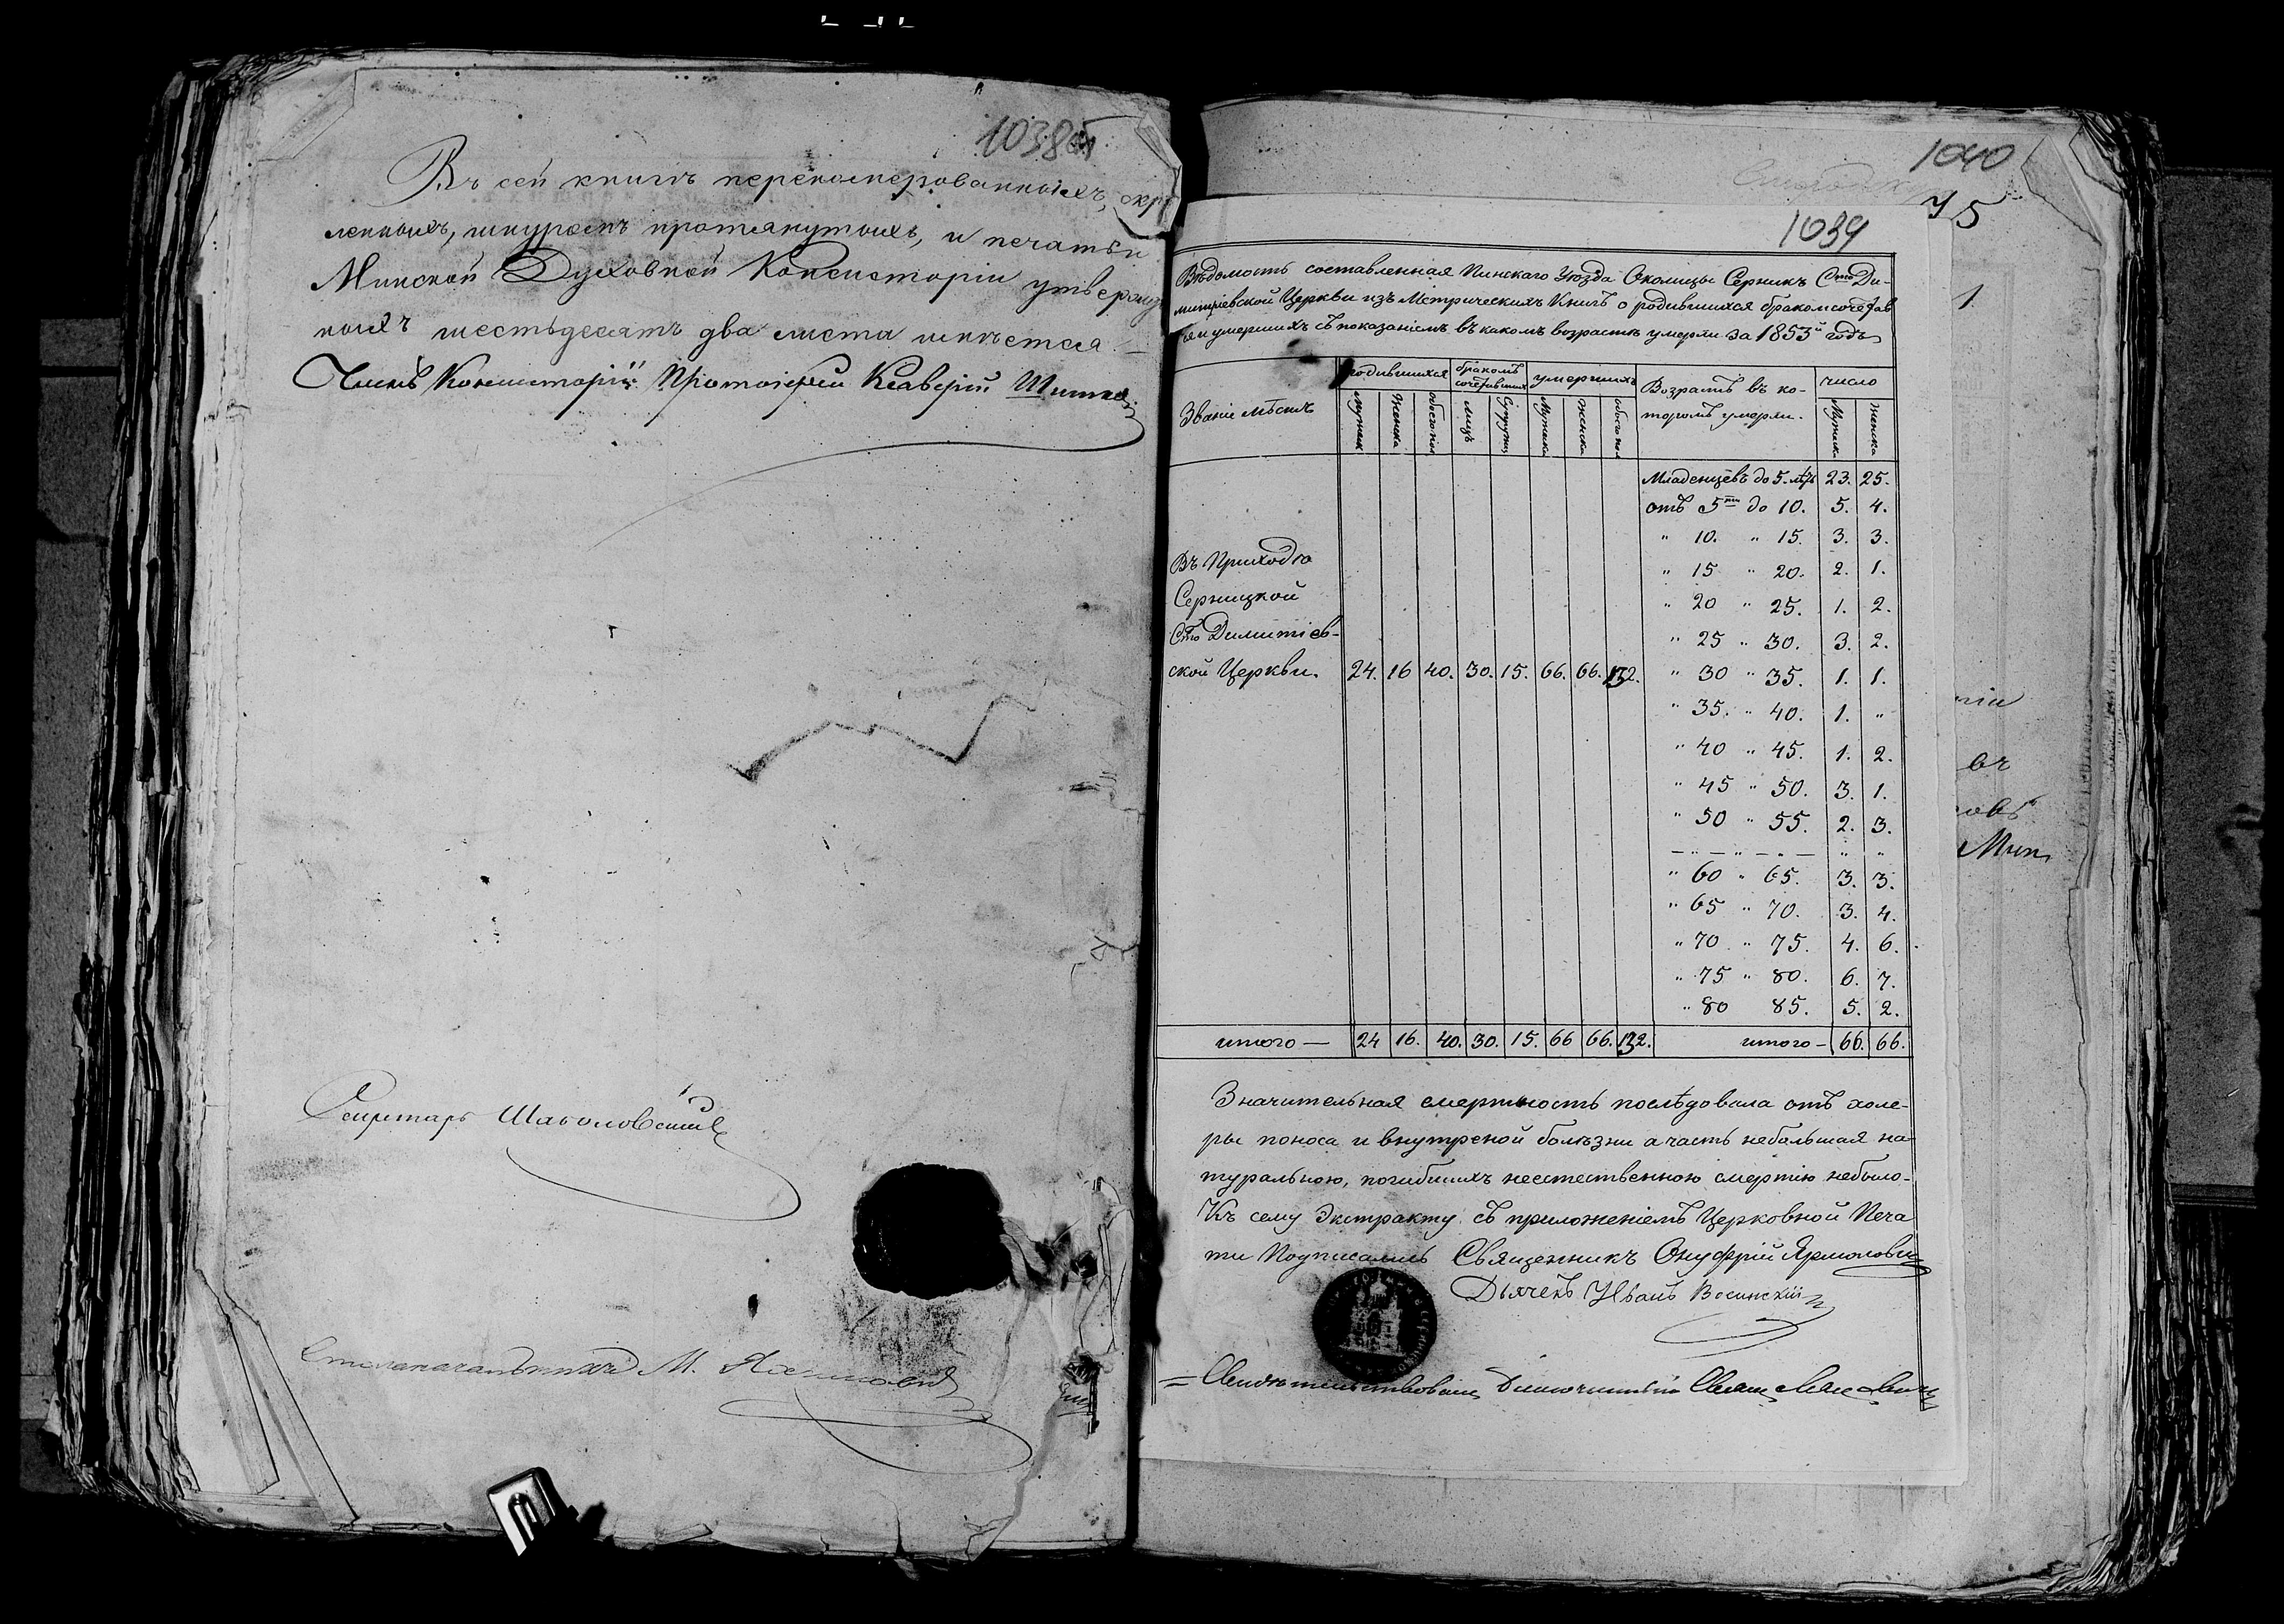 1038об
Въ сей книгѣ перенумерованныхъ, скрѣ
пленныхъ, шнуромъ протянутыхъ, и печатью
Минской Духовной Консисторіи утвержден
ныхъ шестьдесятъ два листа имѣется. —
Членъ Консисторіи Протоіерей Ксаверій
Секретарь
Столоначальникъ М.
1040
75
1039
Вѣдомость составленная Пинскаго Уѣзда Околицы Серникъ Сто Ди-
митріевской Церкви изъ Метрическихъ Книгъ о родившихся бракомсочетав
и умершихъ съ показаніемъ въ какомъ возрастѣ умерли за 1853й годъ
1.
Званіе мѣстъ
родившихся
бракомъ сочетавшихся
умершихъ
Возрастъ въ ко-
торомъ умерли.
число
Мужеска Женска обоего пол лицъ Супруж Мужеска Женска обоего пол Мужеска Женска
Младенцевъ до 5. лѣтъ 23. 25.
отъ 5ти до 10. 5. 4.
" 10. " 15. 3. 3.
" 15 " 20. 2. 1.
" 20 " 25. 1. 2.
" 25 " 30. 3. 2.
" 30 " 35. 1. 1.
" 35. " 40. 1. "
" 40 " 45. 1. 2.
" 45 " 50. 3. 1.
" 50 " 55. 2. 3.
— " — " — " — " "
" 60 " 65. 3. 3.
" 65 " 70. 3. 4.
" 70 " 75. 4. 6.
" 75 " 80. 6. 7.
" 80 85. 5. 2.
Въ Приходѣ
Серницкой
Сто Димитіев-
ской Церкви. 24. 16 40. 30. 15. 66. 66. 132.
итого — 24 16. 40. 30. 15. 66 66. 132. итого — 66. 66.
Значительная смертность послѣдовала отъ холе-
ры поноса и внутреной болѣзни а часть небольшая на
туральною, погибшихъ неестественною смертію небыло-
Къ сему Экстракту съ приложеніемъ Церковной Печа
ти Подписались Священникъ Онуфрій Ярмолович
Дьячекъ Иванъ
= Свидѣтельствовалъ Благочинный
ніи
въ
овъ
Мин